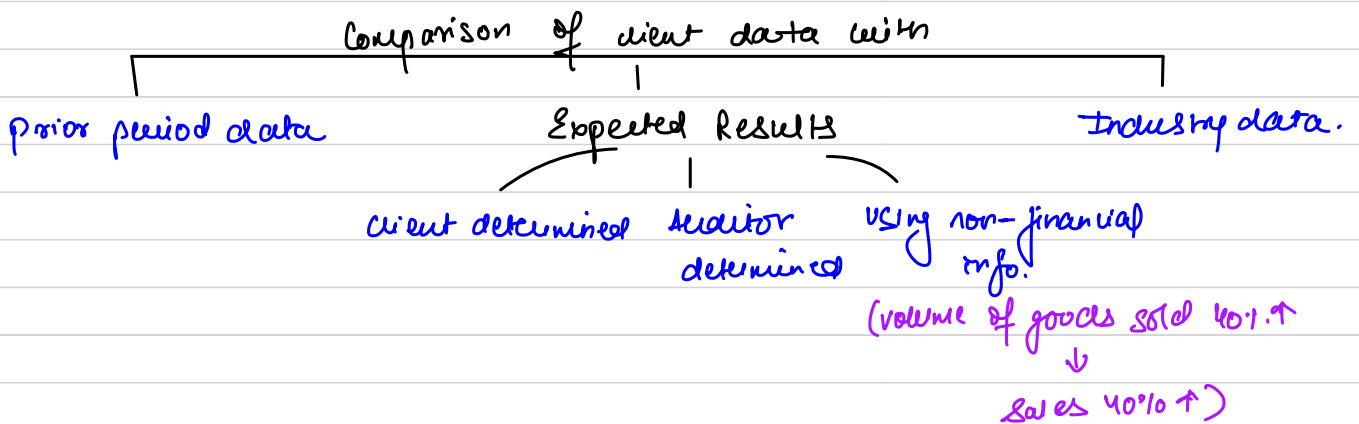 Comparison of client data with
Prior period data Expected Results Industry data.
client determined Auditor using non-financial
determined info.
(volume of goods sold 40%↑
↓
sales 40% ↑)